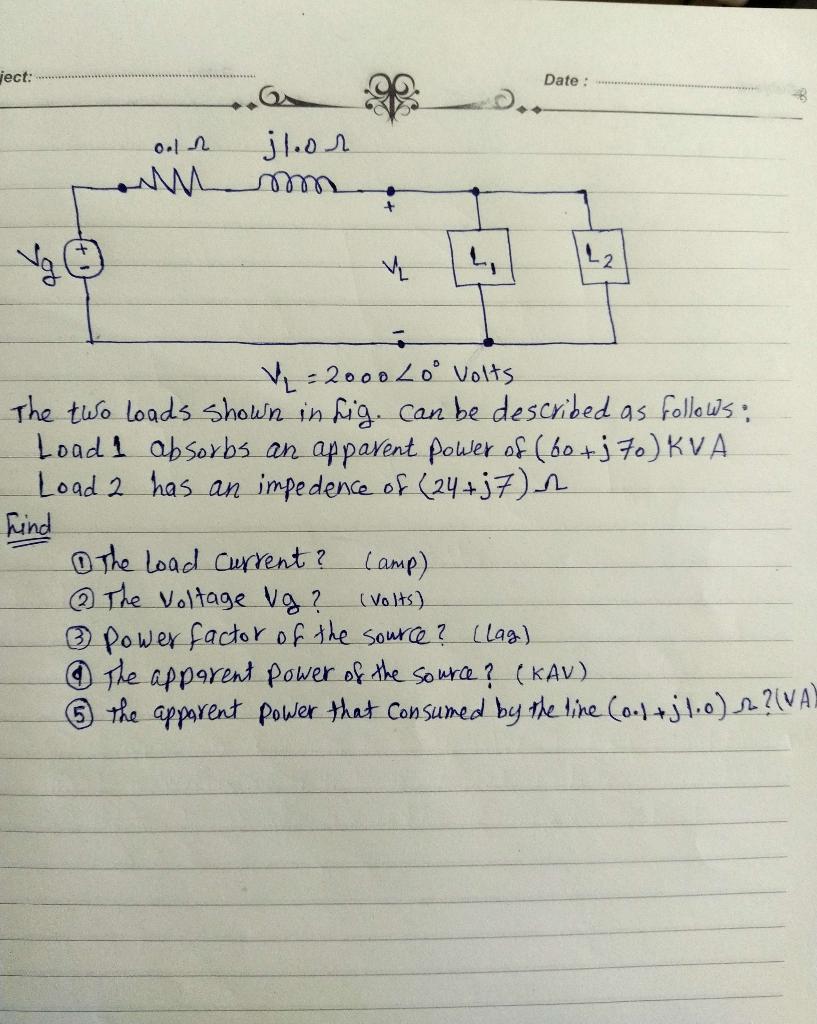 ject:
Date :
0.1 Ω j1.0 Ω
+
Vg
+
-
VL
L1
L2
-
VL = 2000∠0° Volts
The two loads shown in fig. can be described as follows:
Load 1 absorbs an apparent power of (60+j70) KVA
Load 2 has an impedence of (24+j7) Ω
Find
① The Load Current? (amp)
② The Voltage Vg? (Volts)
③ Power factor of the source? (Lag)
④ The apparent power of the source? (KAV)
⑤ the apparent power that Consumed by the line (0.1+j1.0) Ω?(VA)